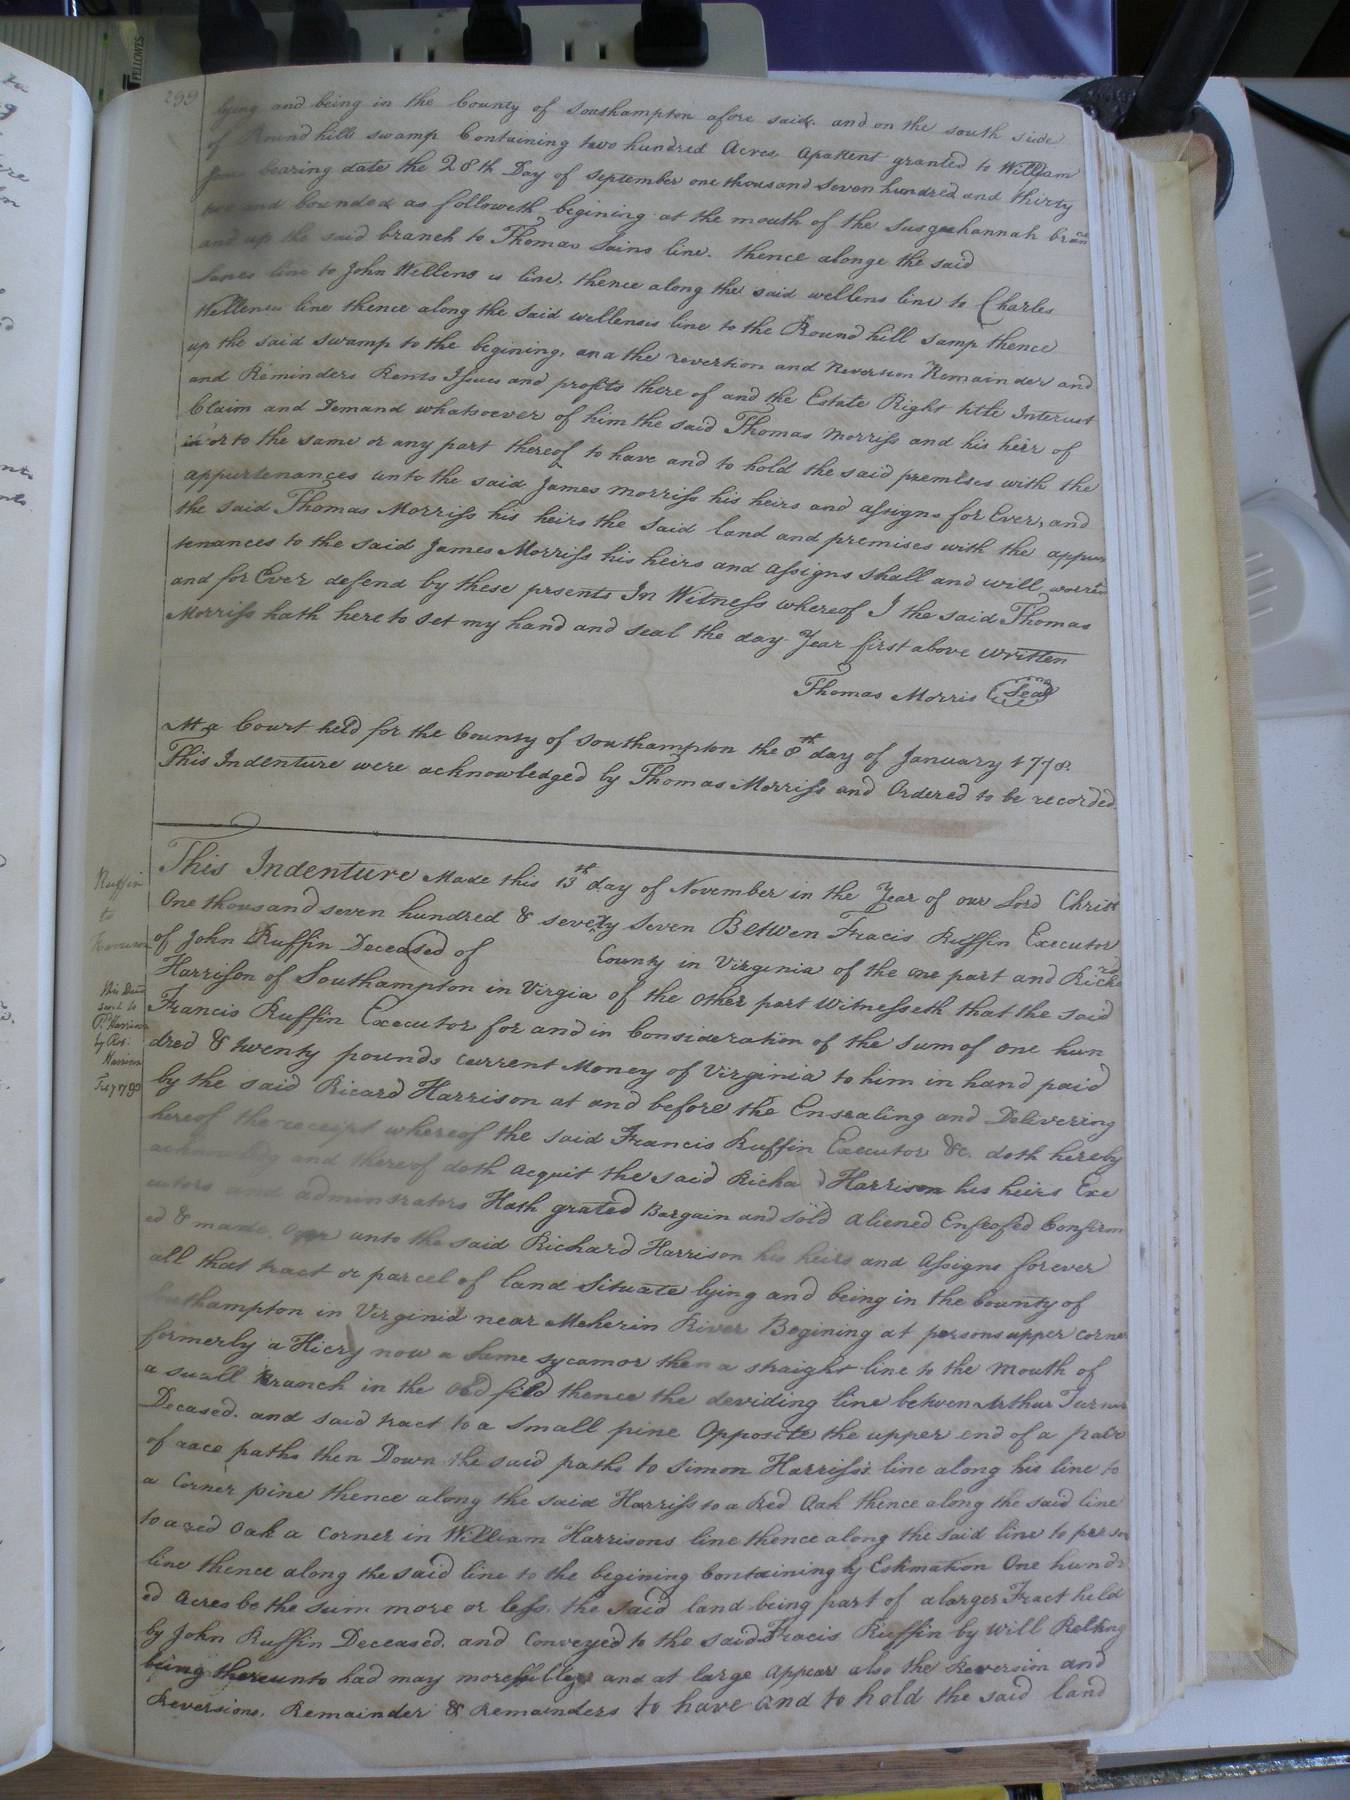 FELLOWES
299
lying and being in the County of Southampton afore said. and on the south side
of Round hill swamp Containing two hundred Acres apattent granted to William
bearing date the 28th Day of september one thousand Seven hundred and thirty
two and bounded as followeth begining at the mouth of the Susgahannah bran
and up the said branch to Thomas Jains line. thence alonge the said
line to John Wellens is line, thence along the said wellens line to Charles
Wellenses line thence along the said wellenses line to the Round hill Samp thence
up the said swamp to the begining, and the revertion and Reversion Remainder and
and Reminders Rents Issues and profits there of and the Estate Right title Interust
Claim and Demand whatsoever of him the said Thomas Morriss and his heir of
in or to the same or any part thereof to have and to hold the said premises with the
appurtenances unto the said James Morriss his heirs and assigns for Ever, and
the said Thomas Morriss his heirs the said land and premises with the appur
tenances to the said James Morriss his heirs and assigns Shall and will
and for Ever defend by these prsents In Witness whereof I the said Thomas
Morriss hath here to set my hand and seal the day Year first above written
Thomas Morris Seal
At a Court held for the County of Southampton the 8th day of January 1778.
This Indenture were acknowledged by Thomas Morriss and Ordered to be recorded.
Ruffin
to
Harrison
this Deed
sent to
R. Harrison
by Ro:
Harrison
This Indenture Made this 13th day of November in the Year of our Lord Christ
One thousand seven hundred & sevety Seven Betwen Fracis Ruffin Executor
of John Ruffin Deceased of County in Virginia of the one part and Richd
Harrison of Southampton in Virgia of the Other part Witnesseth that the said
Francis Ruffin Executor for and in Consideration of the Sum of one hun
dred & twenty pounds current Money of Virginia to him in hand paid
by the said Ricard Harrison at and before the Ensealing and Delivering
hereof the receipt whereof the said Francis Ruffin Executor &c. doth hereby
acknowledg and thereof doth acquit the said Richa d Harrison his heirs Exe
cutors and adminsrators Hath grated Bargain and sold aliened Enfeofed Confirm
ed & made Over unto the said Richard Harrison his heirs and Assigns forever
all that tract or parcel of land situate lying and being in the County of
Southampton in Virginia near Meherin River Begining at persons upper corner
formerly a Hicry now a Same sycamor then a straight line to the mouth of
a small Branch in the Old fild thence the deviding line betwen Arthur Turner
Decased. and said tract to a Small pine Opposite the upper end of a pair
of race paths then Down the said paths to Simon Harriss's line along his line to
a Corner pine thence along the said Harriss to a Red Oak thence along the said line
to a red Oak a Corner in William Harrisons line thence along the said line to person
line thence along the said line to the begining Containing by Estimation One hundr
ed Acres be the sum more or less, the said land being part of a larger Tract held
by John Ruffin Deceased. and Conveyed to the said Fracis Ruffin by will Relting
being thereunto had may more fully and at large appear also the Reversion and
Reversions. Remainder & Remainders to have and to hold the said land